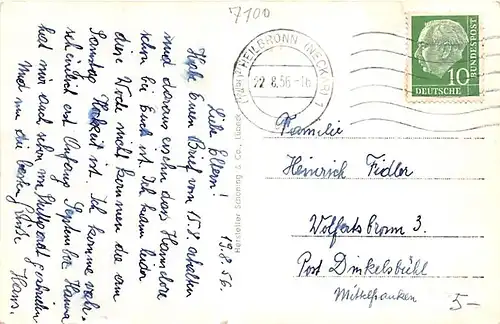 7100
HEILBRONN (NECKAR) 1
22.8.56.-16
DEUTSCHE
BUNDESPOST
10
19.8.56.
Liebe Eltern!
Habe Euren Brief vom 15.8. erhalten
und daraus ersehn dass Hannelore
schon bei Euch ist. Ich kann leider
diese Woche nicht kommen die am
Samstag Hochzeit ist. Ich komme wahr-
scheinlich erst Anfang September. Hanna
hat mir auch schon im Stuttgart geschrieben
Und nun die besten Grüße
Hans.
Hersteller Schöning & Co., Lübeck
Familie
Heinrich Fidler
Wolfertsbronn 3.
Post Dinkelsbühl
Mittelfranken
5-